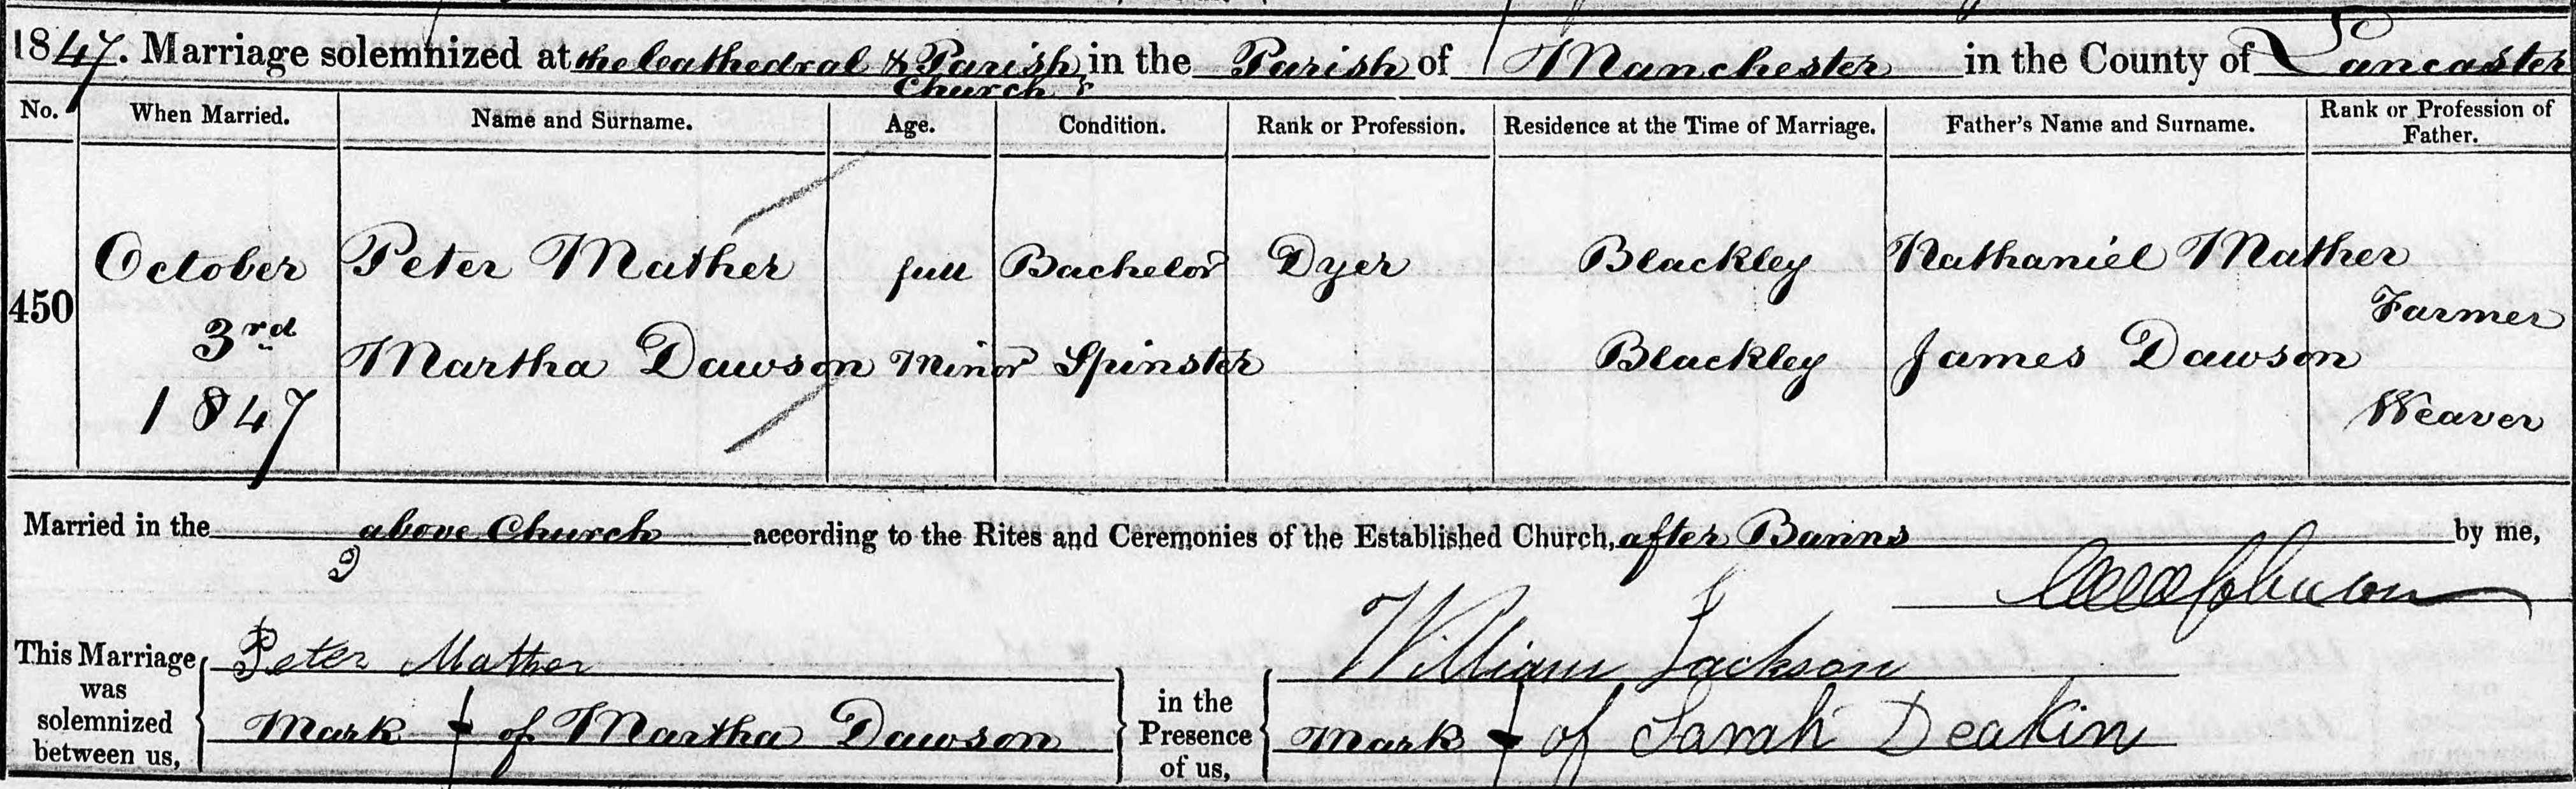 1847. Marriage solemnized at the Cathedral & Parish Church in the Parish of Manchester in the County of Lancaster
No. When Married. Name and Surname. Age. Condition. Rank or Profession. Residence at the Time of Marriage. Father's Name and Surname. Rank or Profession of Father.
450 October 3rd 1847
Peter Mather full Bachelor Dyer Blackley Nathaniel Mather Farmer
Martha Dawson Minor Spinster Blackley James Dawson Weaver
Married in the above Church according to the Rites and Ceremonies of the Established Church, after Banns by me,
Johnson
This Marriage was solemnized between us,
Peter Mather
Mark of Martha Dawson
in the Presence of us,
William Jackson
Mark of Sarah Deakin